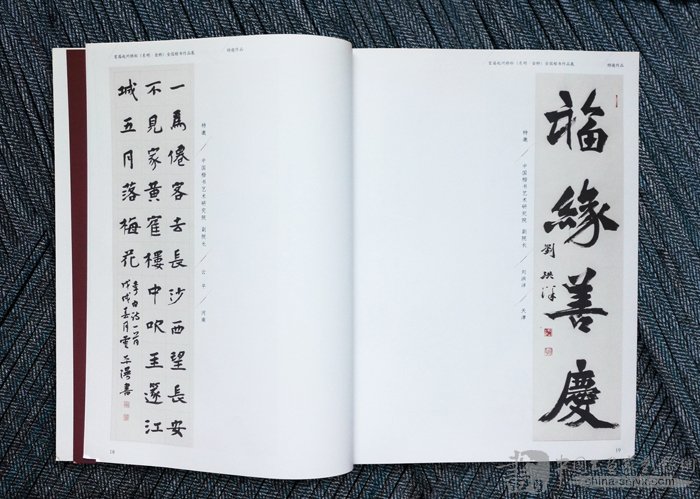 特邀作品
一為僊客去長沙西望長安
不見家黄寉樓中吹玉篴江
城五月落梅花
李白詩一首
戊戌春月雲平
書
特邀 / 中国楷书艺术研究院 副院长 / 云平 / 河南
18
特邀作品
福緣善慶
劉洪洋
特邀 / 中国楷书艺术研究院 副院长 / 刘洪洋 / 天津
19